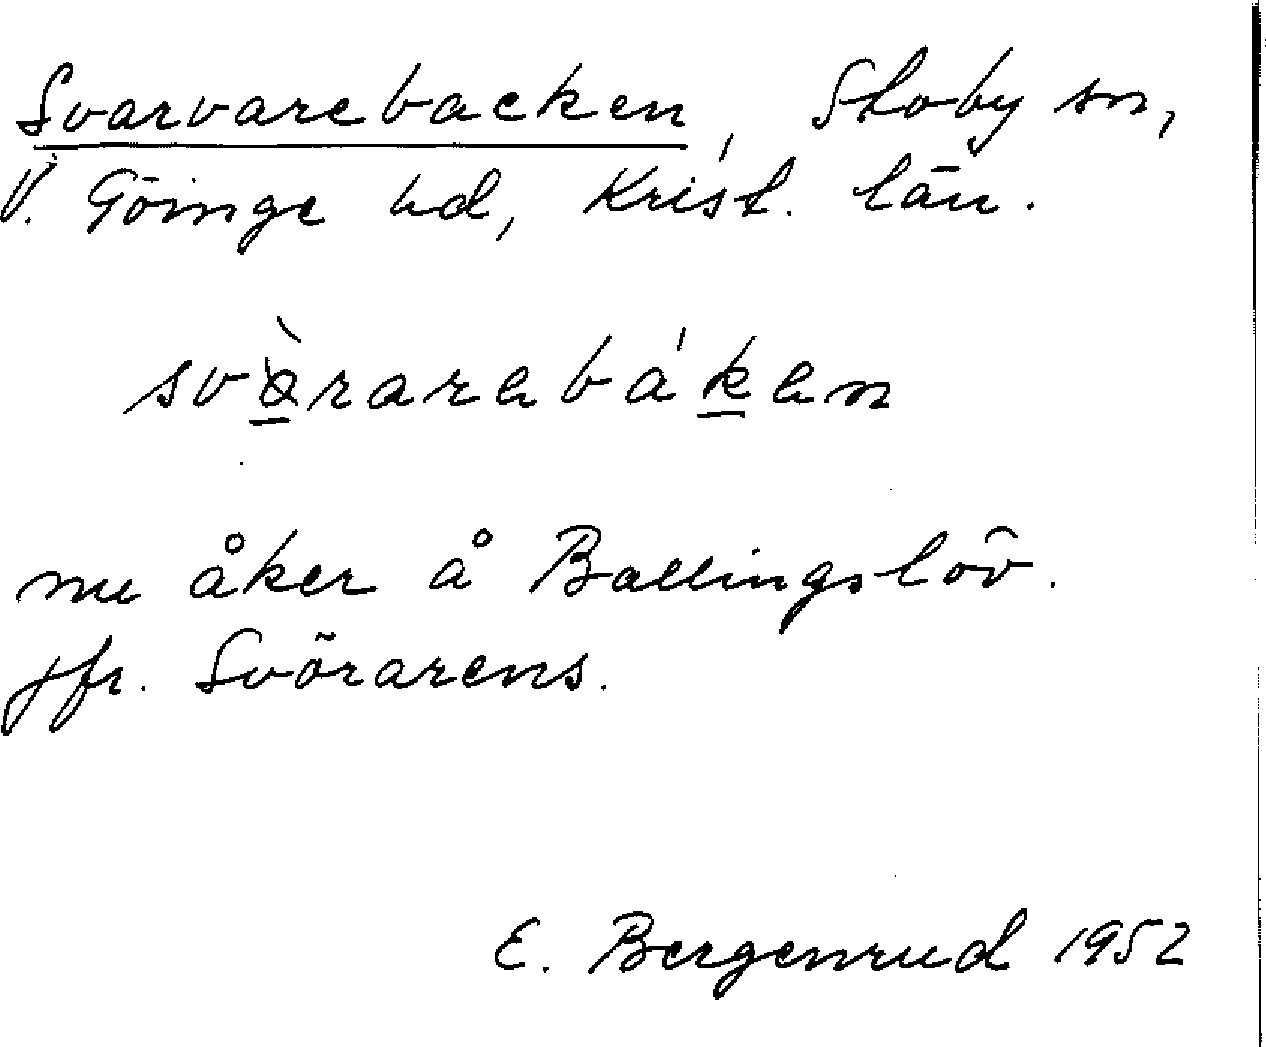 Svarvarebacken, Stoby sn,
V. Göinge hd, Krist. län.
svàrarebáken
nu åker å Ballingslöv.
jfr. Svörarens.
E. Bergenrud 1952